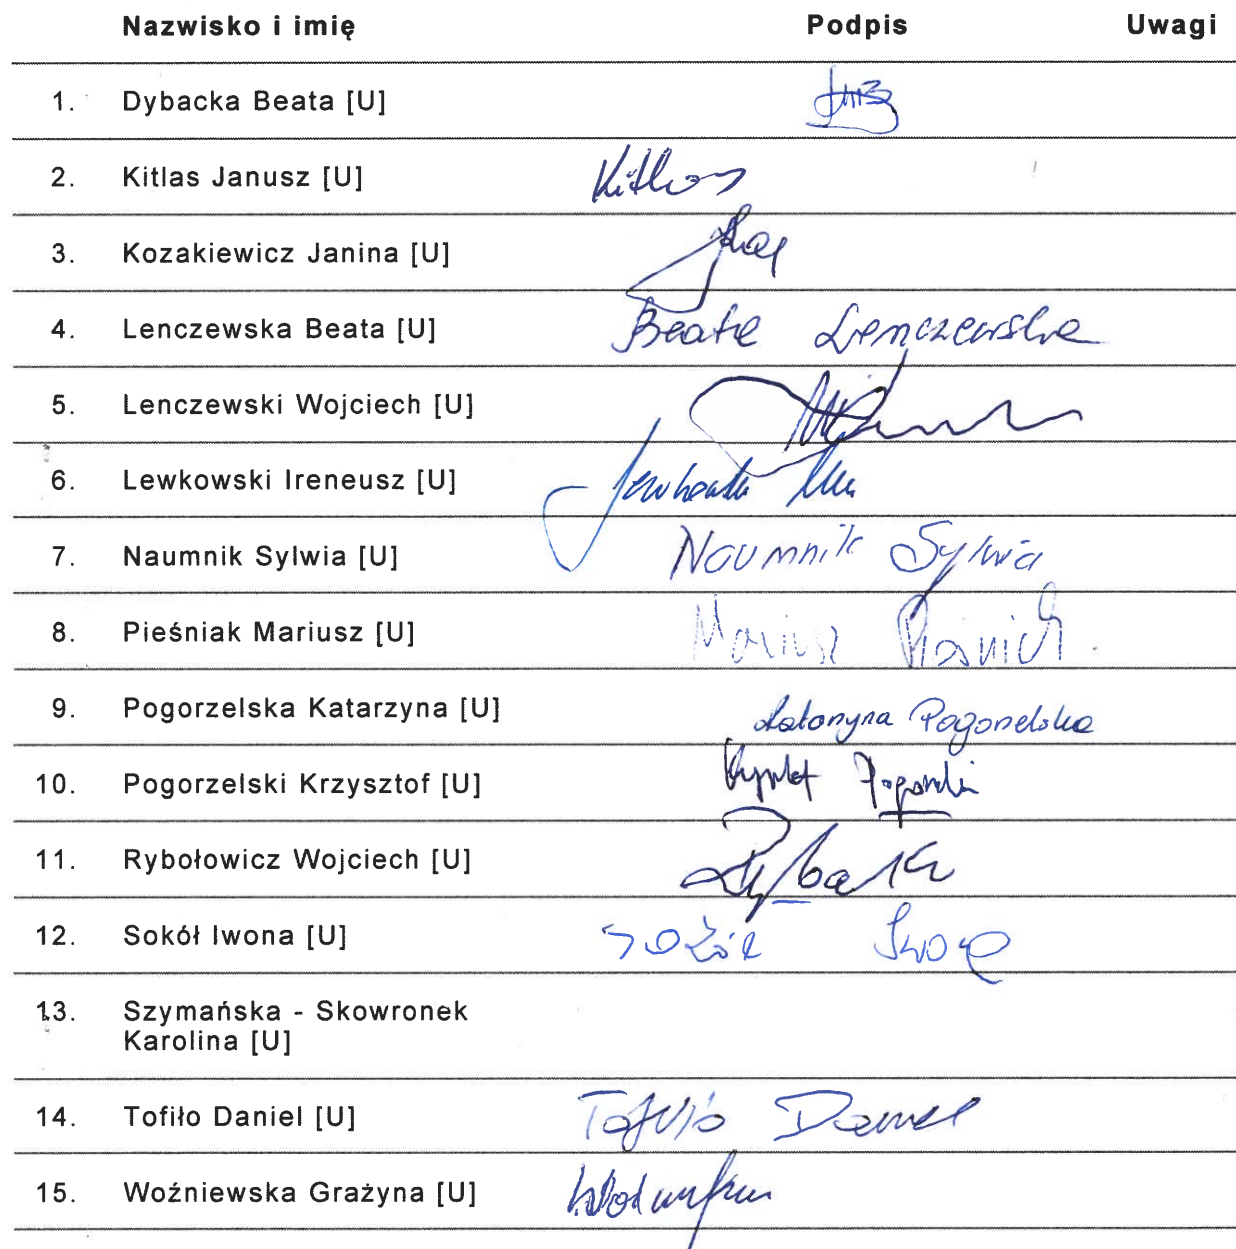 Nazwisko i imię Podpis Uwagi
1. Dybacka Beata [U]
2. Kitlas Janusz [U] Kitlas
3. Kozakiewicz Janina [U]
4. Lenczewska Beata [U] Beata Lenczewska
5. Lenczewski Wojciech [U]
6. Lewkowski Ireneusz [U]
7. Naumnik Sylwia [U] Naumnik Sylwia
8. Pieśniak Mariusz [U] Mariusz Pieśniak
9. Pogorzelska Katarzyna [U] Katarzyna Pogorzelska
10. Pogorzelski Krzysztof [U]
11. Rybołowicz Wojciech [U]
12. Sokół Iwona [U] Sokół Iwona
13. Szymańska - Skowronek
Karolina [U]
14. Tofiło Daniel [U] Tofiło Daniel
15. Woźniewska Grażyna [U]